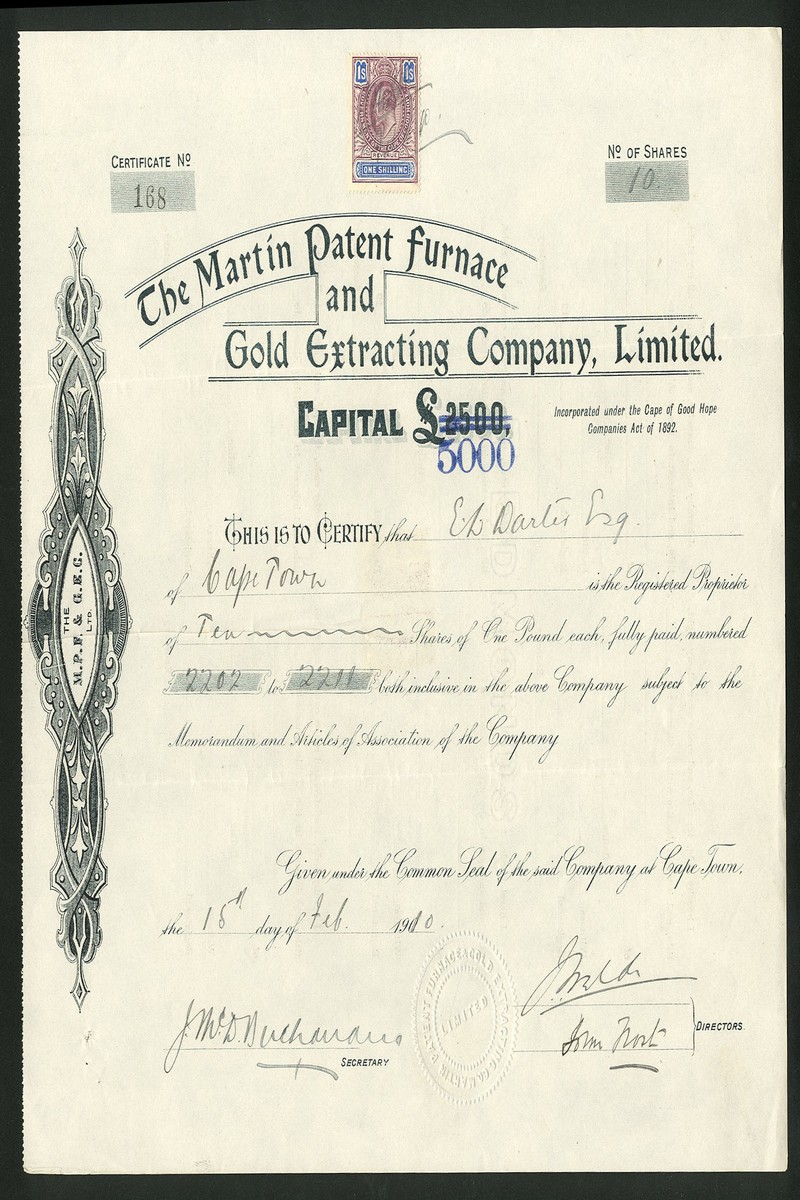 1s 1s
REVENUE
ONE SHILLING
CERTIFICATE Nº
168
Nº OF SHARES
10
The Martin Patent Furnace
and
Gold Extracting Company, Limited.
CAPITAL £2500,
5000
Incorporated under the Cape of Good Hope
Companies Act of 1892.
THIS IS TO CERTIFY that E L Darter Esq.
of Cape Town is the Registered Proprietor
of Ten Shares of One Pound each, fully paid, numbered
2202 to 2211 both inclusive in the above Company subject to the
Memorandum and Articles of Association of the Company
THE
M.P.F. & G.E.C.
LTD.
Given under the Common Seal of the said Company at Cape Town,
the 15th day of Feb. 1910.
MARTIN PATENT FURNACE & GOLD EXTRACTING CO.
LIMITED
J. McD. Buchanan
SECRETARY
John Frost
DIRECTORS.